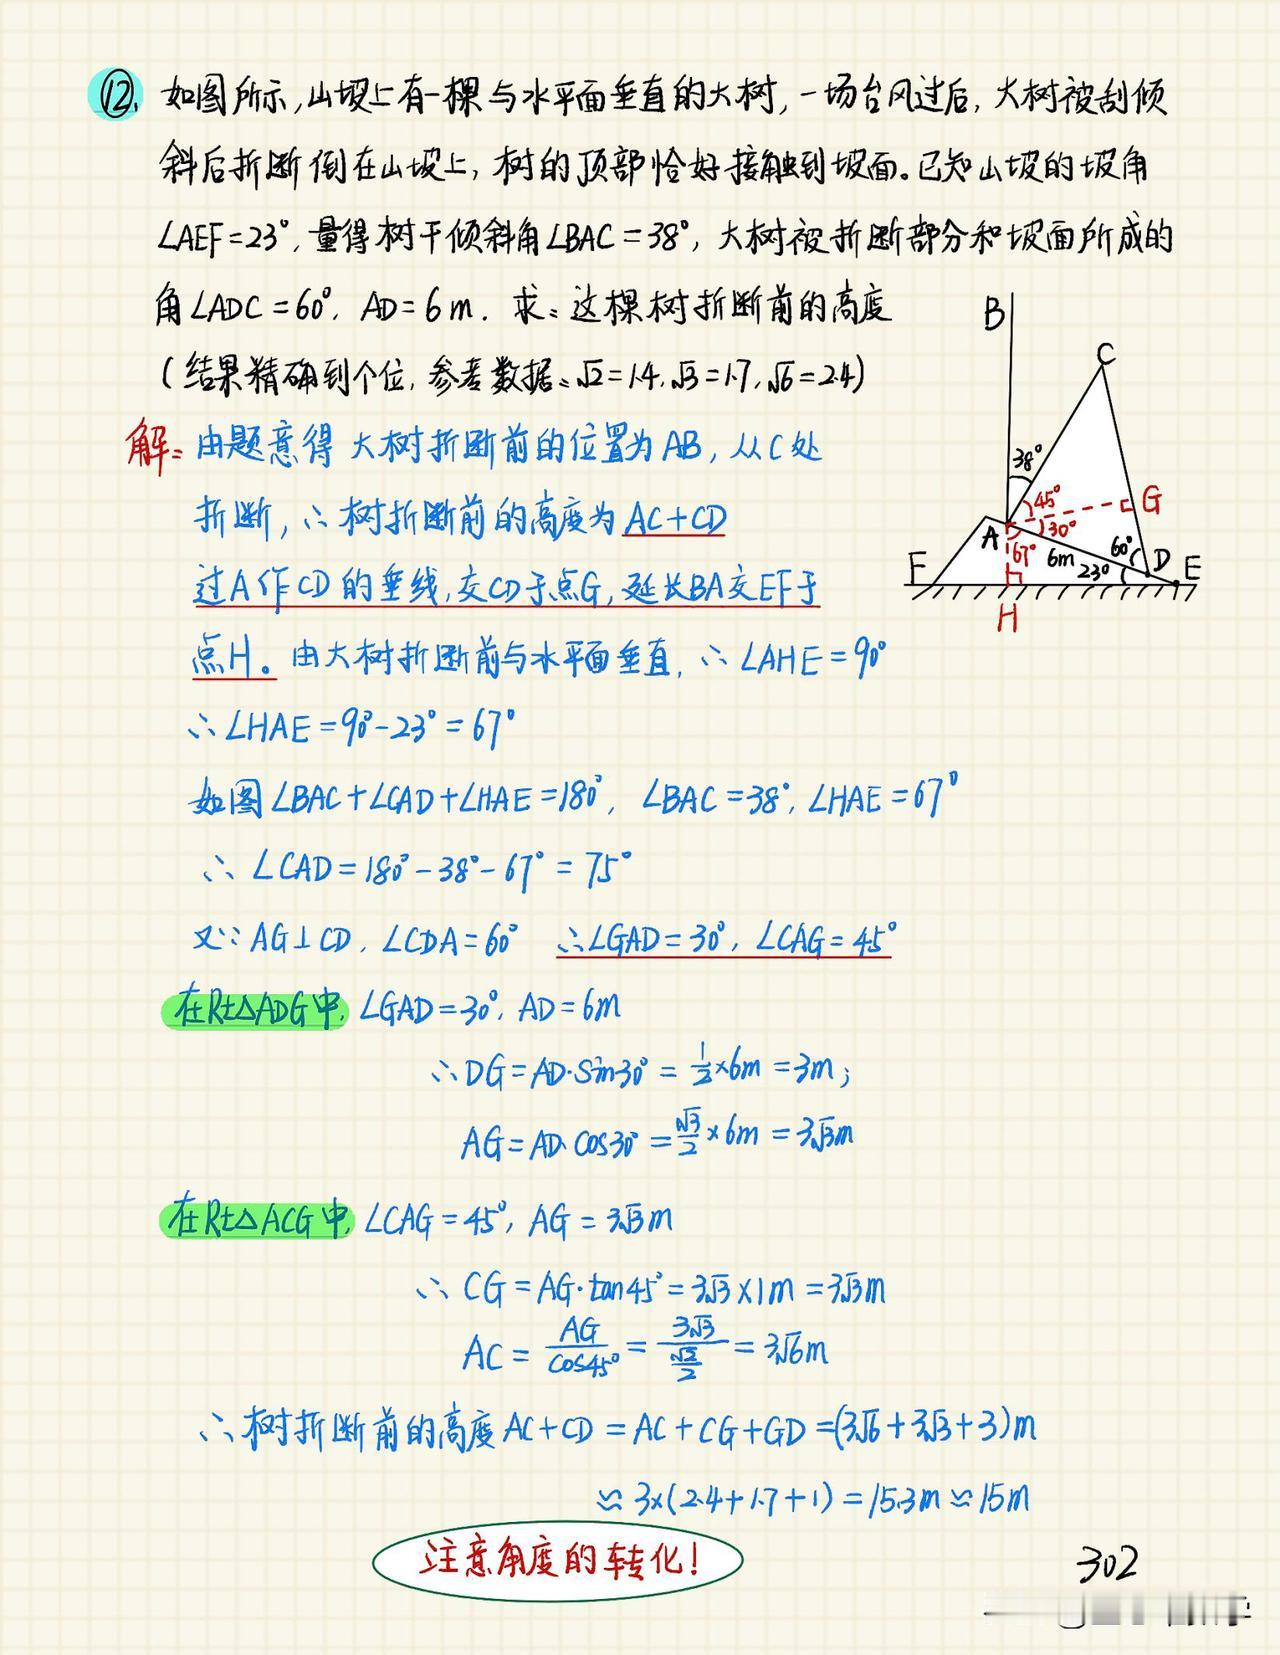 ⑫. 如图所示,山坡上有一棵与水平面垂直的大树,一场台风过后,大树被刮倾
斜后折断倒在山坡上,树的顶部恰好接触到坡面。已知山坡的坡角
∠AEF=23°,量得树干倾斜角∠BAC=38°,大树被折断部分和坡面所成的
角∠ADC=60°, AD=6m. 求:这棵树折断前的高度
(结果精确到个位,参考数据:√2=1.4,√3=1.7,√6=2.4)
B
C
38°
45°
G
30°
A
67°
6m
60°
D
23°
E
F
H
解: 由题意得 大树折断前的位置为AB,从C处
折断,∴树折断前的高度为AC+CD
过A作CD的垂线,交CD于点G,延长BA交EF于
点H。由大树折断前与水平面垂直,∴∠AHE=90°
∴∠HAE=90°-23°=67°
如图∠BAC+∠CAD+∠HAE=180°, ∠BAC=38°,∠HAE=67°
∴∠CAD=180°-38°-67°=75°
又∵AG⊥CD, ∠CDA=60° ∴∠GAD=30°, ∠CAG=45°
在Rt△ADG中, ∠GAD=30°, AD=6m
∴DG=AD·sin30°=1/2×6m=3m;
AG=AD·cos30°=√3/2×6m=3√3m
在Rt△ACG中, ∠CAG=45°, AG=3√3m
∴CG=AG·tan45°=3√3×1m=3√3m
AC=AG/cos45°=3√3/(√2/2)=3√6m
∴树折断前的高度AC+CD=AC+CG+GD=(3√6+3√3+3)m
≈3×(2.4+1.7+1)=15.3m≈15m
注意角度的转化!
302